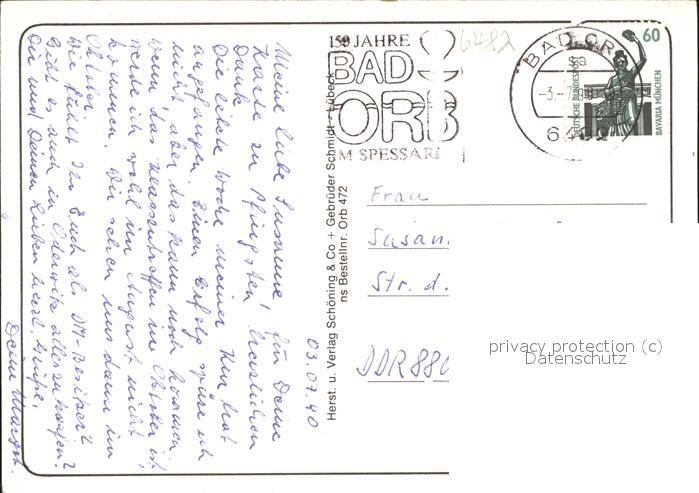 150 JAHRE
BAD
ORB
IM SPESSART
6482
BAD ORB
-3.-7.
60
DEUTSCHE BUNDESPOST
BAVARIA MÜNCHEN
Meine liebe Susanne, für Deine
Karte zu Pfingsten herzlichen
Dank.
Die dritte Woche meiner Kur hat
angefangen. Einen Erfolg spüre ich
nicht, aber das kann noch kommen.
Wenn das Klassentreffen im Oktober ist,
werde ich wohl im August nicht
kommen. Wir sehen uns dann im
Oktober.
Wie fühlt Ihr Euch als DM-Besitzer?
Gibt es auch in Oderwitz alles zu kaufen?
Dir und Deinen Lieben herzl. Grüße,
Deine Margot.
03.07.90
Herst. u. Verlag Schöning & Co + Gebrüder Schmidt - Lübeck
ns Bestellnr. Orb 472
Frau
Susan
Str. d.
DDR 880
privacy protection (c)
Datenschutz